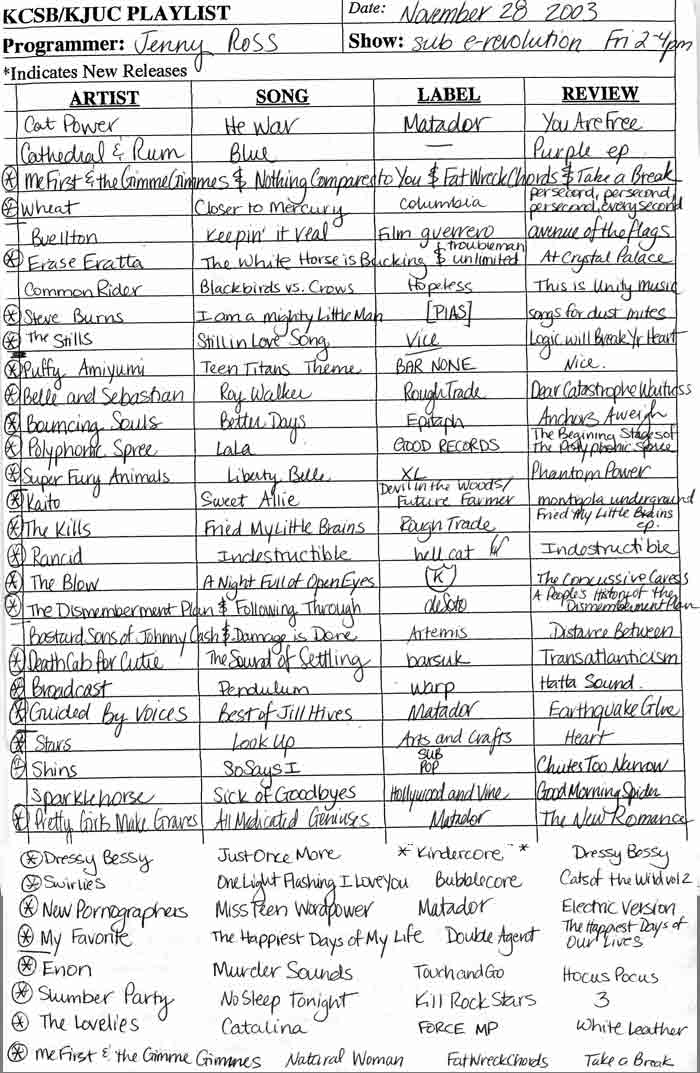 KCSB/KJUC PLAYLIST Date: November 28 2003
Programmer: Jenny Ross Show: sub e-revolution Fri 2-4pm
*Indicates New Releases
ARTIST SONG LABEL REVIEW
Cat Power He War Matador You Are Free
Cathedral & Rum Blue — Purple ep
* Me First & the Gimme Gimmes & Nothing Compares to You & Fat Wreck Chords & Take a Break
* Wheat Closer to Mercury Columbia persecond, persecond, persecond, everysecond
Buellton Keepin' it real Film guerrero avenue of the flags
* Erase Eratta The White Horse is Bucking & troubleman unlimited At Crystal Palace
Common Rider Blackbirds vs. Crows Hopeless This is Unity music
* Steve Burns I am a mighty Little Man [PIAS] songs for dust mites
* The Stills Still in Love Song Vice Logic will Break Yr Heart
* Puffy Amiyumi Teen Titans Theme BAR NONE Nice.
* Belle and Sebastian Roy Walker Rough Trade Dear Catastrophe Waitress
* Bouncing Souls Better Days Epitaph Anchors Aweigh
* Polyphonic Spree LaLa GOOD RECORDS The Begining Stages of The Polyphonic Spree
* Super Fury Animals Liberty Belle XL Phantom Power
* Kaito Sweet Allie Devil in the Woods/ Future Farmer montigola underground
* The Kills Fried My Little Brains Rough Trade Fried My Little Brains ep.
* Rancid Indestructible hell cat Indestructible
* The Blow A Night Full of Open Eyes K The Concussive Caress
* The Dismemberment Plan & Following Through deSoto A People's History of the Dismemberment Plan
Bastard Sons of Johnny Cash & Damage is Done Artemis Distance Between
* Death Cab for Cutie The Sound of Settling barsuk Transatlanticism
* Broadcast Pendulum Warp HaHa Sound.
* Guided By Voices Best of Jill Hives Matador Earthquake Glue
* Stars Look Up Arts and Crafts Heart
* Shins So Says I SUB POP Chutes Too Narrow
Sparklehorse Sick of Goodbyes Hollywood and Vine Good Morning Spider
* Pretty Girls Make Graves All Medicated Geniuses Matador The New Romance
* Dressy Bessy Just Once More * Kindercore * Dressy Bessy
* Swirlies One Light Flashing I Love You Bubblecore Cats of the Wild vol 2
* New Pornographers Miss Teen Wordpower Matador Electric Version
* My Favorite The Happiest Days of My Life Double Agent The Happiest Days of Our Lives
* Enon Murder Sounds Touch and Go Hocus Pocus
* Slumber Party No Sleep Tonight Kill Rock Stars 3
* The Lovelies Catalina FORCE MP White Leather
* Me First & the Gimme Gimmes Natural Woman Fat Wreck Chords Take a Break